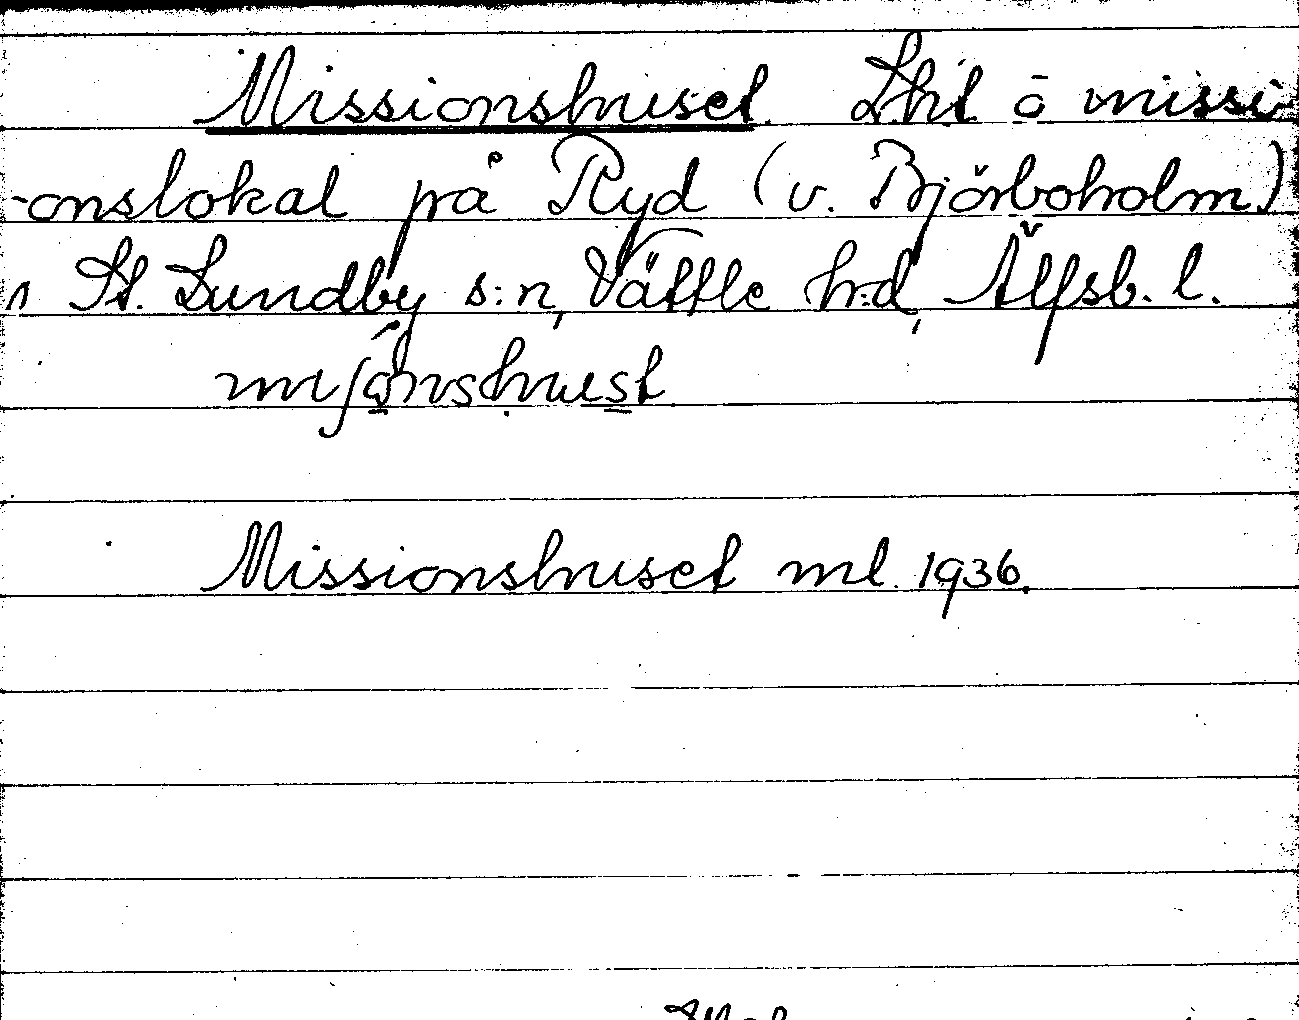 Missionshuset. Lht o missi-
-onslokal på Ryd (v. Björboholm)
i St. Lundby s:n, Vättle h:d, Älfsb. l.
Missionshuset ml. 1936.